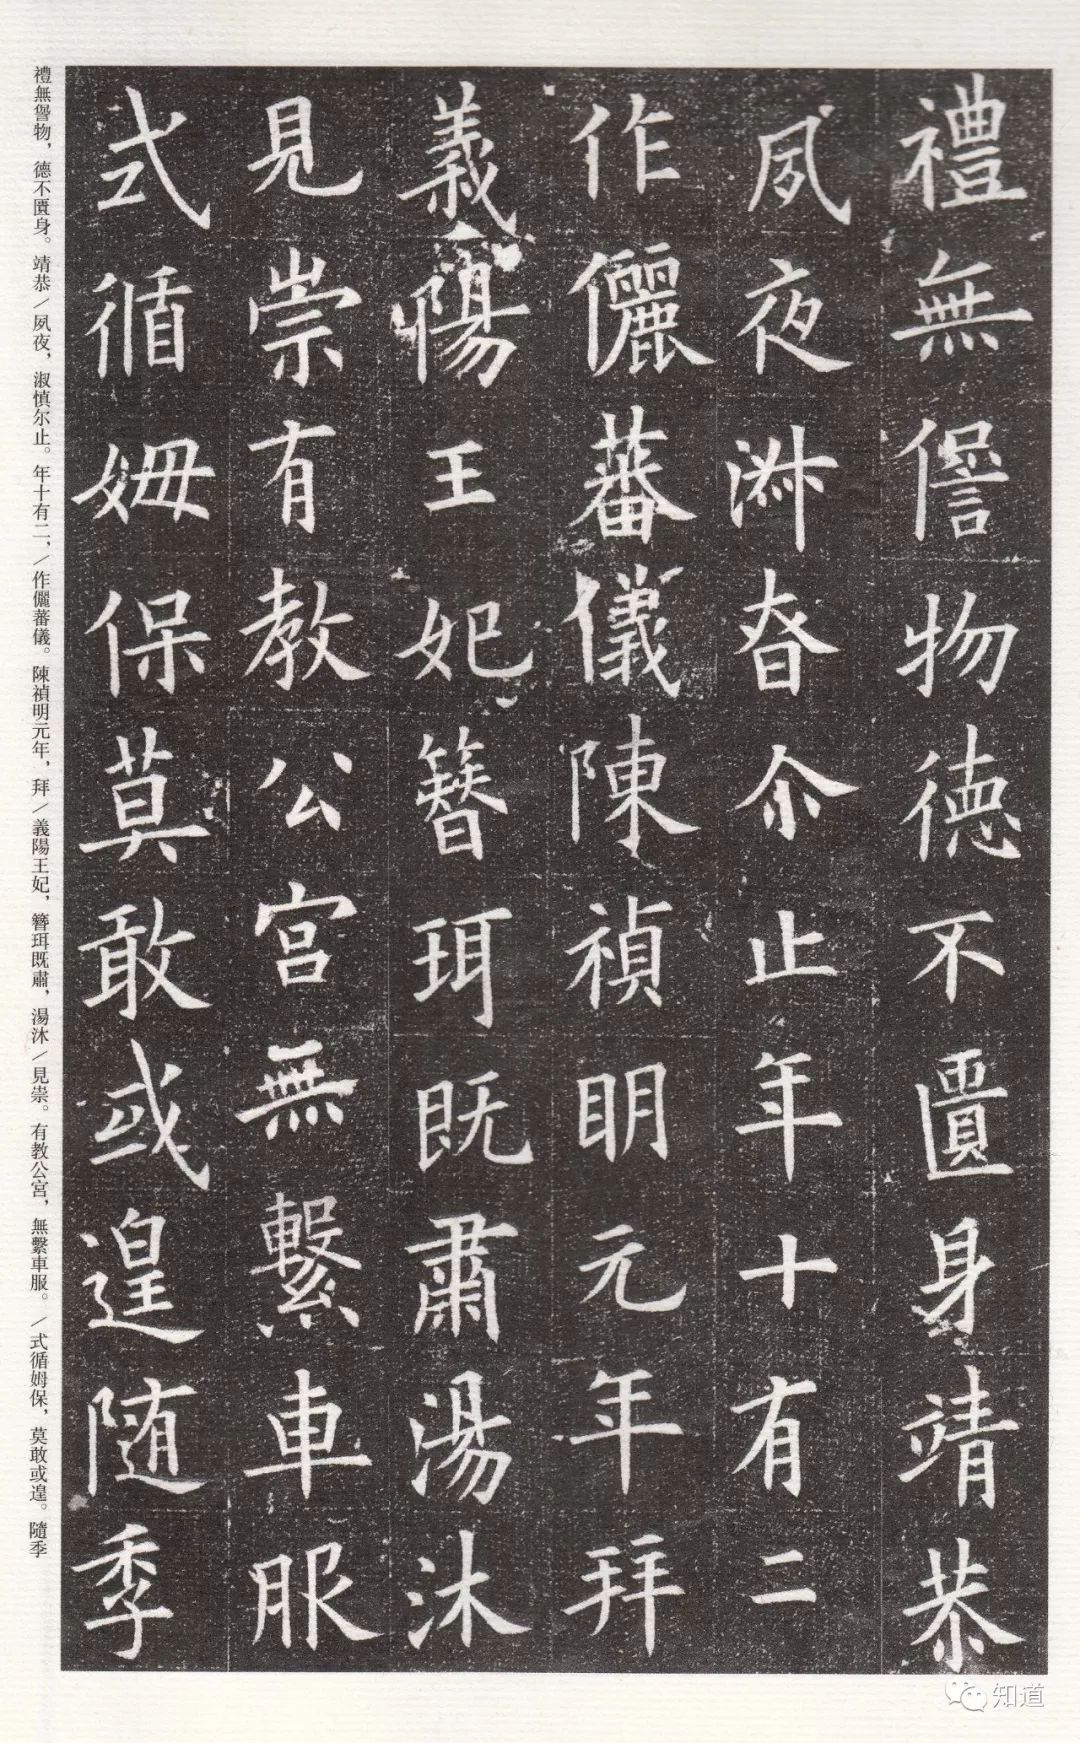 禮無儅物德不匱身靖恭
夙夜淋昚尒止年十有二
作儷蕃儀陳禎明元年拜
義陽王妃簪珥既肅湯沐
見崇有教公宮無繫車服
式循姆保莫敢或遑随季
禮無諐物，德不匱身。靖恭／夙夜，淑慎尔止。年十有二，／作儷蕃儀。陳禎明元年，拜／義陽王妃，簪珥既肅，湯沐／見崇。有教公宮，無繫車服。／式循姆保，莫敢或遑。隨季
知道